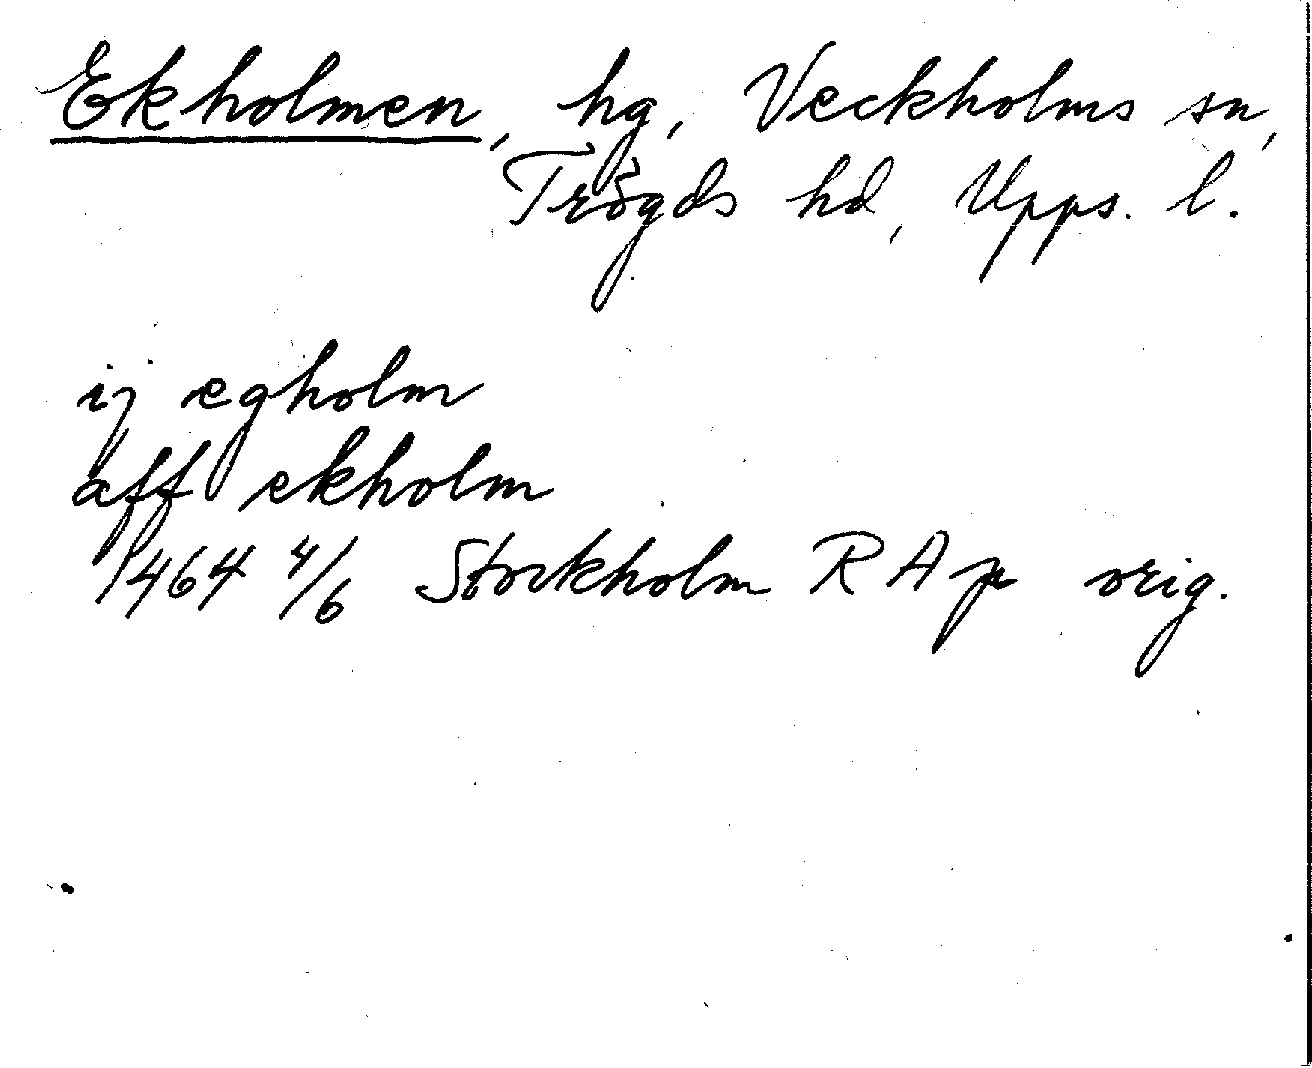 Ekholmen, hg, Veckholms sn,
Trögds hd, Upps. l.
ij ægholm
aff ekholm
1464 4/6 Stockholm RAp orig.